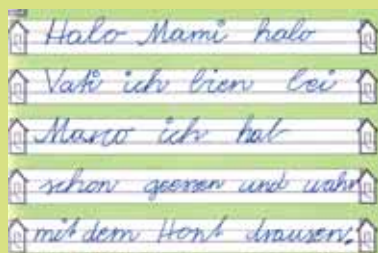 Halo Mami halo
Vati ich bien bei
Marco ich hab
schon geesen und wahr
mit dem Hont drausen.